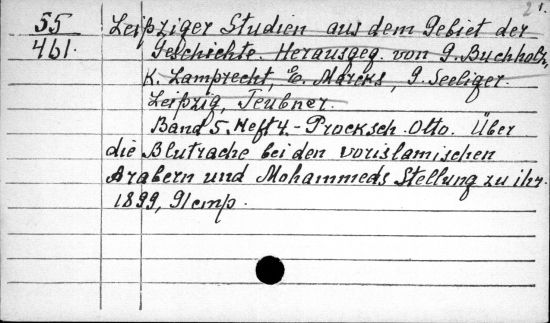 2 1.
55 Leipziger Studien aus dem Gebiet der
461. Geschichte. Herausgeg. von G. Buchholz,
K. Lamprecht, E. Marcks, G. Seeliger.
Leipzig, Teubner.
Band 5. Heft 4.- Procksch. Otto. Über
die Blutrache bei den vorislamischen
Arabern und Mohammeds Stellung zu ihr.
1899, 91 cmp.